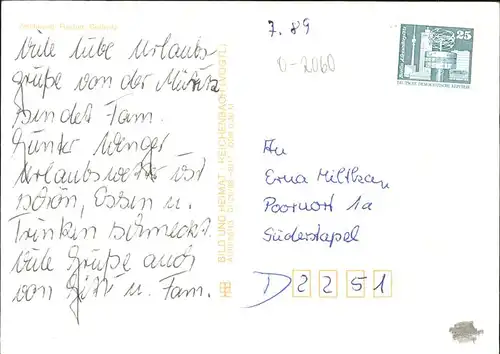 Viele liebe Urlaubs-
grüße von der Müritz
sendet Fam.
Günter Wenger
Urlaubswetter ist
schön, Essen u.
Trinken schmeckt.
Viele Grüße auch
von Gitti u. Fam.
BILD UND HEIMAT REICHENBACH (VOGTL)
7.89
V-2060
25
DEUTSCHE DEMOKRATISCHE REPUBLIK
An
Erna Miltkau
Poornort 1a
Süderstapel
D 2251